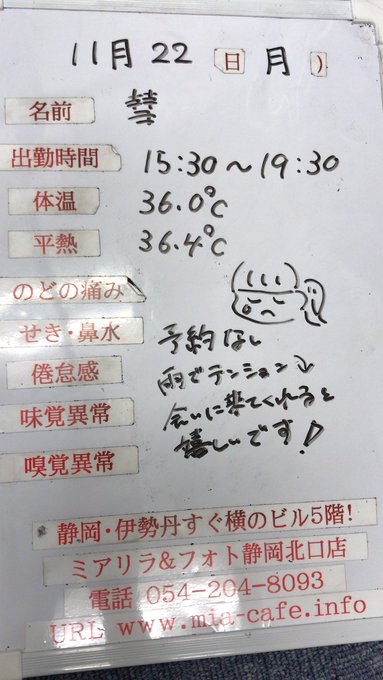 11月22 日 月 )
名前 彗
出勤時間 15:30〜19:30
体温 36.0℃
平熱 36.4℃
のどの痛み
せき・鼻水 予約なし
倦怠感 雨でテンション↓
味覚異常 会いに来てくれると
嗅覚異常 嬉しいです!
静岡・伊勢丹すぐ横のビル5階!
ミアリラ&フォト静岡北口店
電話 054-204-8093
URL www.mia-cafe.info